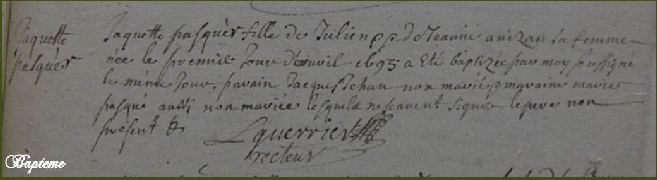 Jaquette
pasquer
Jaquette pasquer fille de Julien p. et Jeanne anizan sa femme
née le premie Jour Davuil 1695 a Eté baptizée par moy soussigné
le même Jour, parain Jacques Jehan non mariée maraine marie
pasqué aussi non mariée lesquels ne scavent signer le pere non
présent &
Lguerrier
recteur
Bapteme